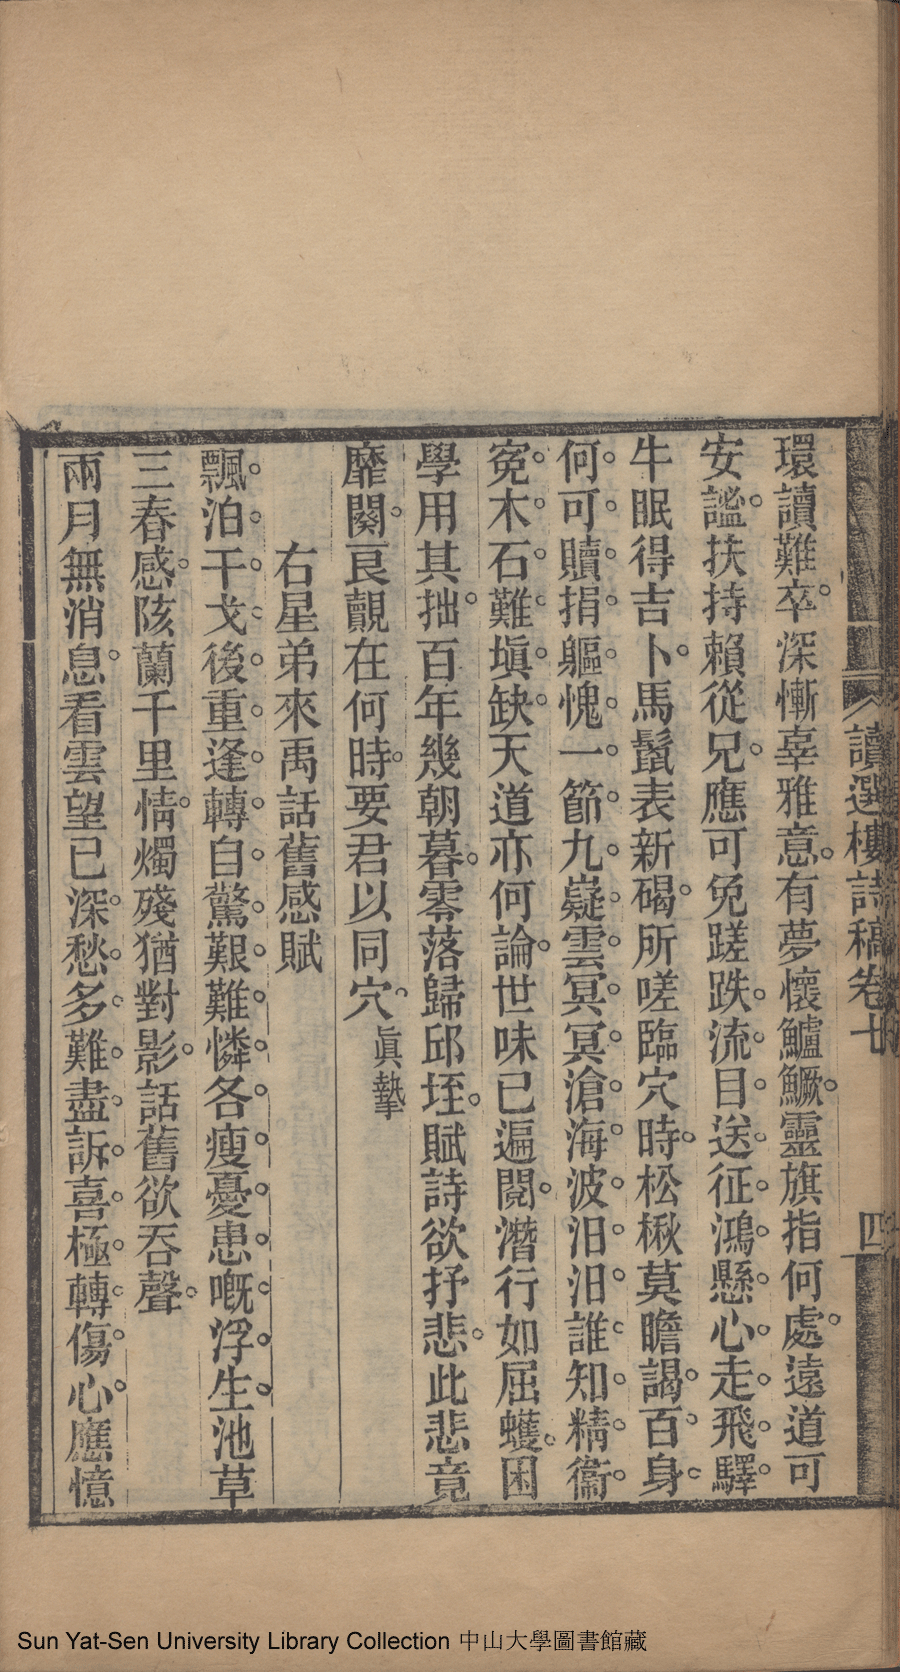 讀選樓詩稿卷十
四
環讀難卒深慚辜雅意有夢懷鱸鱖靈旗指何處遠道可
安謐扶持賴從兄應可免蹉跌流目送征鴻懸心走飛驛
牛眠得吉卜馬鬣表新碣所嗟臨穴時松楸莫瞻謁百身
何可贖捐軀愧一節九嶷雲冥冥滄海波汨汨誰知精衞
寃木石難塡缺天道亦何論世味已遍閱潛行如屈蠖困
學用其拙百年幾朝暮零落歸邱垤賦詩欲抒悲此悲竟
靡闋良覿在何時要君以同穴眞摯
右星弟來禹話舊感賦
飄泊干戈後重逢轉自驚艱難憐各瘦憂患嘅浮生池草
三春感陔蘭千里情燭殘猶對影話舊欲吞聲
兩月無消息看雲望已深愁多難盡訴喜極轉傷心應憶
Sun Yat-Sen University Library Collection 中山大學圖書館藏